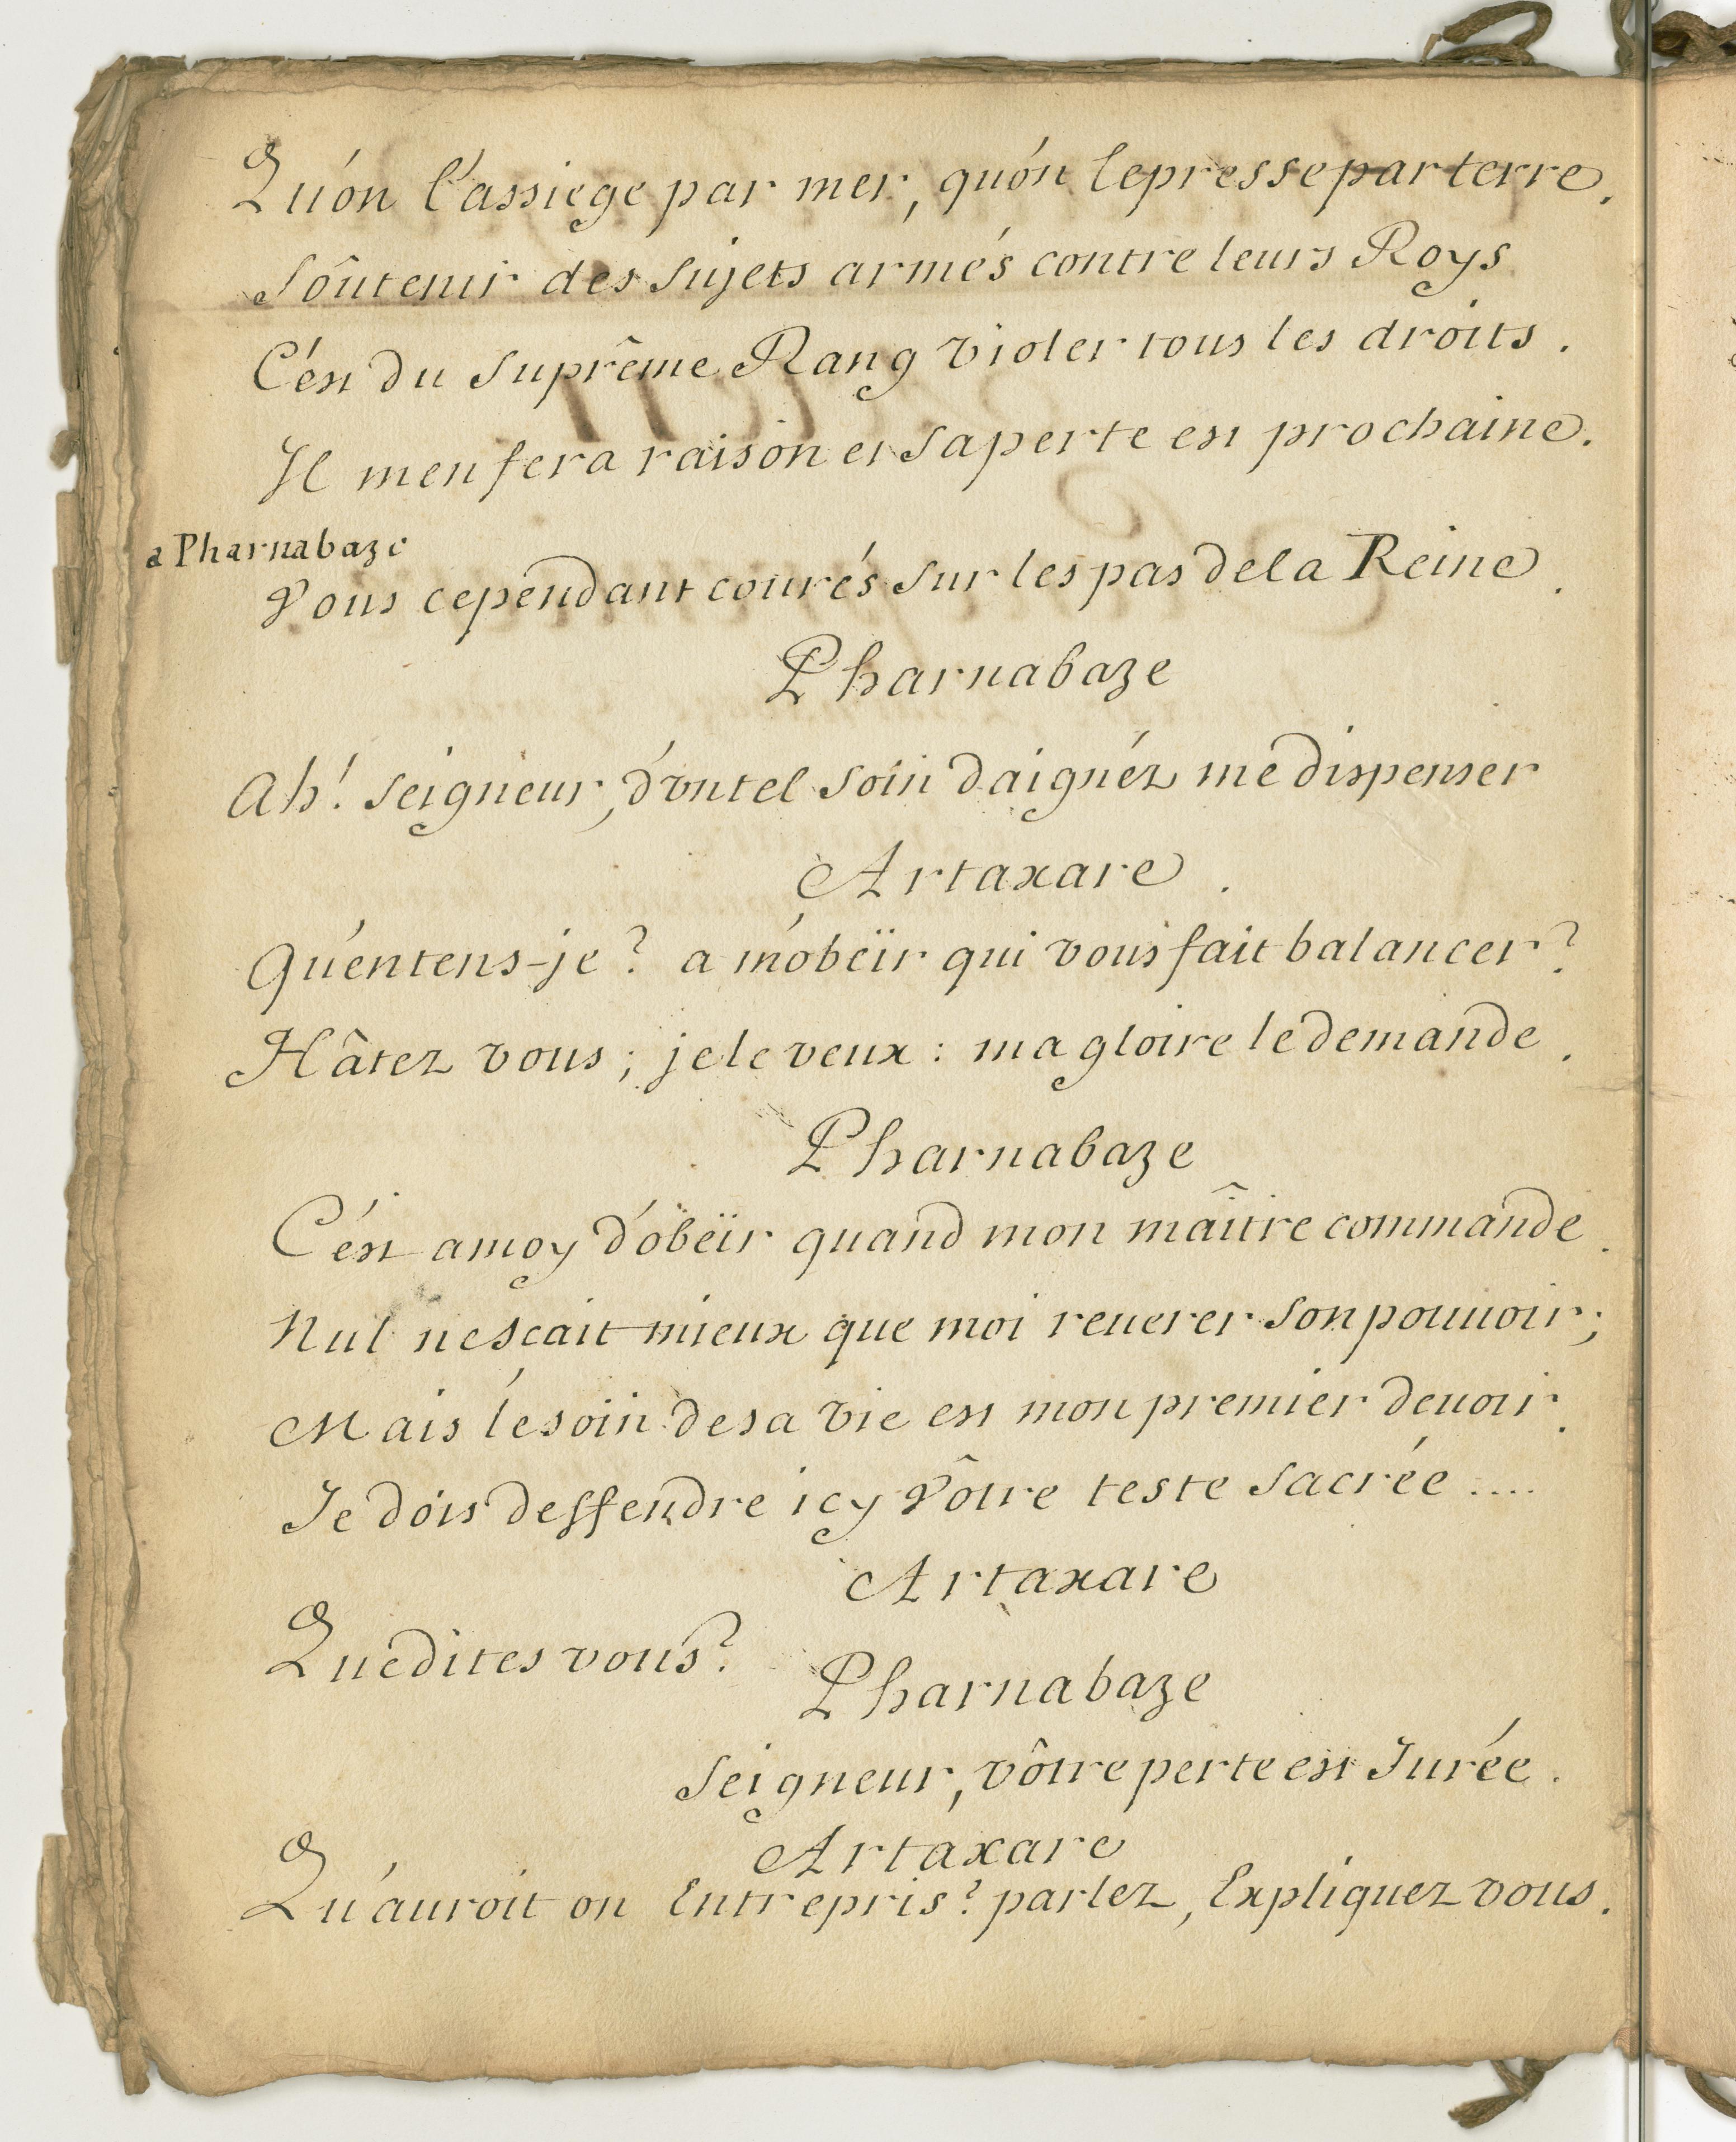 Qu'on l'assiege par mer, qu'on le presse par terre.
Soûtenir des Sujets armés contre leurs Roys
C'est du Suprême Rang violer tous les droits.
Il m'en fera raison et sa perte est prochaine.
a Pharnabaze
Vous cependant courés Sur les pas de la Reine.
Pharnabaze
Ah! Seigneur, d'vn tel Soin daignéz me dispenser
Artaxare.
Qu'entens-je? a m'obeïr qui vous fait balancer?
Hâtez vous; je le veux: ma gloire le demande.
Pharnabaze
C'est a moy d'obeïr quand mon maître commande.
Nul ne Scait mieux que moi reuerer Son pouuoir;
Mais le soin de sa vie est mon premier deuoir.
Je dois deffendre icy Vôtre teste Sacrée ....
Artaxare
Que dites vous?
Pharnabaze
Seigneur, vôtre perte est Jurée.
Artaxare
Qu'auroit on Entrepris? parlez, Expliquez vous.